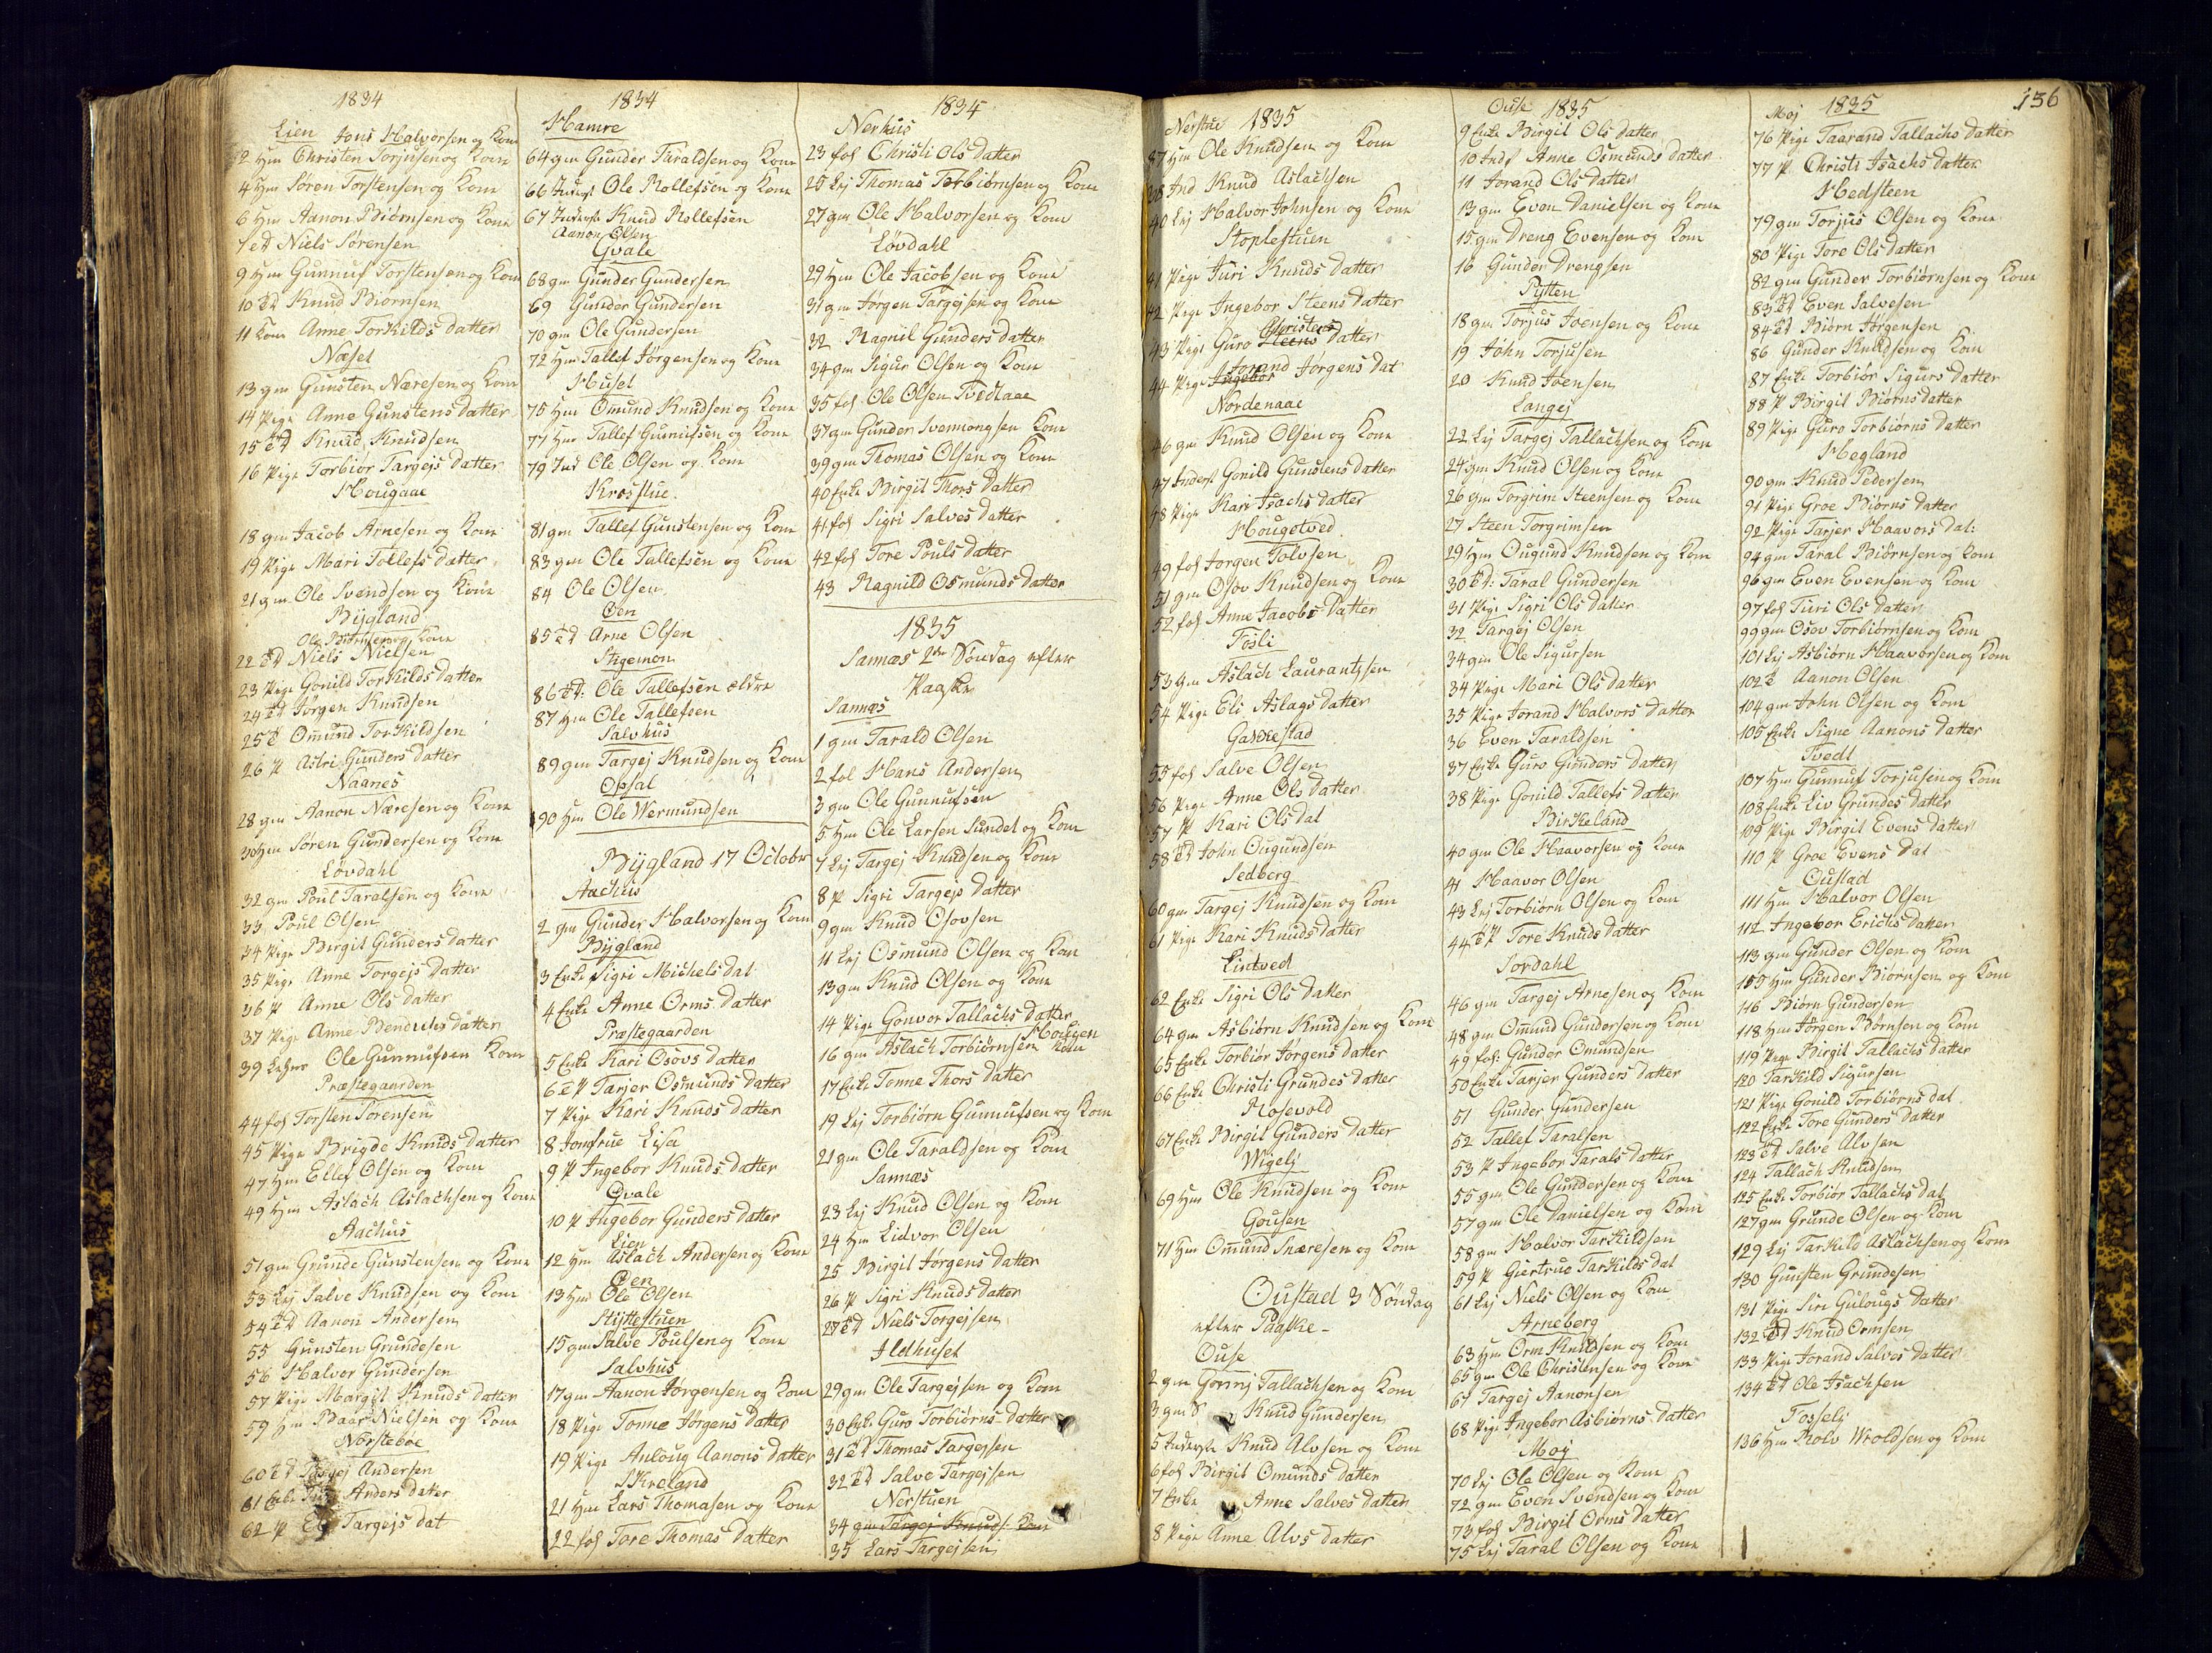 1834
Lien Jons Halvorsen og Kone
2 Hm Christen Torjusen og Kone
4 Hm Søren Torstensen og Kone
6 Hm Aanon Biørnsen og Kone
7 ED Niels Sørensen
9 Hm Gunnuf Torstensen og Kone
10 ED Knud Biørnsen
11 Kone Anne Torkilds datter
Næset
13 gm Gunsten Næresen og Kone
14 Pige Anne Gunstens datter
15 ED Knud Knudsen
16 Pige Torbiør Targejs datter
Hougaae
18 gm Jacob Arnesen og Kone
19 Pige Mari Tollefs datter
21 gm Ole Svendsen og Kone
Bÿgland
22 ED Niels Nielsen
23 Pige Gonild Torkilds datter
24 ED Jørgen Knudsen
25 E Omund Torkildsen
26 P Astri Gunders datter
Naanes
28 gm Aanon Næresen og Kone
30 Hm Søren Gundersen og Kone
Løvdahl
32 gm Poul Taralsen og Kone
33 Poul Olsen
34 Pige Birgit Gunders datter
35 Pige Anne Torgejs datter
36 P Anne Ols datter
37 Pige Anne Bendichs datter
39 Ole Gunnufsen Kone
Præstegaarden
44 fol Torsten Sørensen
45 Pige Brigde Knuds datter
47 Hm Ellef Olsen og Kone
49 Hm Aslach Aslachsen og Kone
Aachus
51 gm Grunde Gunstensen og Kone
53 Lej Salve Knudsen og Kone
54 ED Aanon Andersen
55 Gunsten Grundesen
56 Halvor Gundersen
57 Pige Margit Knuds datter
59 Hm Baar Nielsen og Kone
Norstebøe
60 ED Andersen
61 Enke Anders datter
62 P Targejs dat
1834
Hamre
64 gm Gunder Taraldsen og Kone
66 Inderst Ole Rollefsen og Kone
67 Inderst Knud Rollefsen
Aanon Olsen
Qvale
68 gm Gunder Gundersen
69 Gunder Gundersen
70 gm Ole Gundersen
72 Hm Tallef Jørgensen og Kone
Huset
75 Hm Omund Knudsen og Kone
77 Hm Tallef Gunnufsen og Kone
79 Ind Ole Olsen og Kone
Krosstue
81 gm Tallef Gunstensen og Kone
83 gm Ole Tallefsen og Kone
84 Ole Olsen
Øen
85 ED Arne Olsen
Stigemon
86 ED: Ole Tallefsen ældre
87 Hm Ole Tallefsen
Salvhus
89 gm Targej Knudsen og Kone
Opsal
90 Hm Ole Wermundsen
Bÿgland 17 Octobr
Aachus
2 gm Gunder Halvorsen og Kone
Bÿgland
3 Enke Sigri Michels dat
4 Enke Anne Orms datter
Præstegaarden
5 Enke Kari Osovs datter
6 E P Tarjer Osmunds datter
7 Pige Kari Knuds datter
8 Jomfrue Lisa
9 P Ingebor Knuds datter
Qvale
10 P Ingebor Gunders datter
Lien
12 Hm Aslach Andersen og Kone
Øen
13 Hm Ole Olsen
Stÿttestuen
15 gm Salve Poulsen og Kone
Salvhus
17 gm Aanon Jørgensen og Kone
18 Pige Tonne Jørgens datter
19 Pige Anloug Aanons datter
Skreland
21 Hm Lars Thomasen og Kone
22 fol Tore Thomas datter
1834
Nerhus
23 fol Christi Ols datter
25 Lej Thomas Torbiørnsen og Kone
27 gm Ole Halvorsen og Kone
Løvdahl
29 Hm Ole Jacobsen og Kone
31 gm Jørgen Targejsen og Kone
32 Ragnil Gunders datter
34 gm Sigur Olsen og Kone
35 fol Ole Olsen Tvedtaae
37 gm Gunder Svennongsen Kone
39 gm Thomas Olsen og Kone
40 Enke Birgit Thors datter
41 fol Sigri Salves datter
42 fol Tore Pouls datter
43 Ragnild Osmunds datter
1835
Sannæs 2den Søndag efter
Paaske
Sannæs
1 gm Tarald Olsen
2 fol Hans Andersen
3 gm Ole Gunnufsen
5 Hm Ole Larsen Sundet og Kone
7 Lej Targej Knudsen og Kone
8 P Sigri Targejs datter
9 gm Knud Osovsen
11 Lej Osmund Olsen og Kone
13 gm Knud Olsen og Kone
14 Pige Gonvor Tallachs datter
16 gm Aslach Torbiørnsen Kone
17 Enke Tonne Thors datter
19 Lej Torbiørn Gunnufsen og Kone
21 gm Ole Taraldsen og Kone
Sannæs
23 Lej Knud Olsen og Kone
24 Hm Lidvor Olsen
25 Birgit Jørgens datter
26 P Sigri Knuds datter
27 ED Niels Torgejsen
Ildhuset
29 gm Ole Targejsen og Kone
30 Enke Guro Torbiørns datter
31 ED Thomas Targejsen
32 ED Salve Targejsen
Nerstuen
34 gm Targej Knuds. Kone
35 Lars Targejsen
Nerstue 1835
37 Hm Ole Knudsen og Kone
38 Ind Knud Aslachsen
40 Lej Halvor Johnsen og Kone
Stoplestuen
41 Pige Juri Knuds datter
42 Pige Ingebor Steens datter
Christens
43 Pige Guro Steens datter
44 Pige Ingebor Jorand Jørgens Dat
Nordenaae
46 gm Knud Olsen og Kone
47 Inderst Gonild Gunstens datter
48 Pige Kari Isachs datter
Hougetved
49 fol Jorgen Tolvsen
51 gm Osov Knudsen og Kone
52 fol Anne Jacobs datter
Fosli
53 gm Aslach Laurantzsen
54 Pige Eli Aslags datter
Gakkestad
55 fol Salve Olsen
56 Pige Anne Ols datter
57 P Kari Ols dat
58 ED John Ougundsen
Sedberg
60 gm Targej Knudsen og Kone
61 Pige Kari Knuds datter
Lintved
62 Enke Sigri Ols datter
64 gm Asbiørn Knudsen og Kone
65 Enke Torbiør Jørgens datter
66 Enke Christi Grundes datter
Rosevold
67 Enke Birgit Gunders datter
Wigelj
69 Hm Ole Knudsen og Kone
Gousen
71 Hm Omund Snæresen og Kone
Oustad 3 Søndag
efter Paaske-
Ouse
2 gm Tallachsen og Kone
3 gm Knud Gundersen
5 Inderste Knud Alvsen og Kone
6 fol Birgit Omunds datter
7 Enke Anne Salves datter
8 Pige Anne Alvs datter
Ouse 1835
9 Enke Birgit Ols datter
10 Inds Anne Osmunds datter
11 Jorand Ols datter
13 gm Even Danielsen og Kone
15 gm Dreng Evensen og Kone
16 Gunder Drengsen
Pÿtten
18 gm Torjus Joensen og Kone
19 John Torjusen
20 Knud Joensen
Langej
22 Lej Targej Tallachsen og Kone
24 gm Knud Olsen og Kone
26 gm Torgrim Steensen og Kone
27 Steen Torgrimsen
29 Hm Ougund Knudsen og Kone
30 ED: Taral Gundersen
31 Pige Sigri Ols datter
32 Targej Olsen
34 gm Ole Sigursen
34 Pige Mari Ols datter
35 Pige Jorand Halvors datter
36 Even Taraldsen
37 Enke Guro Gunders datter
38 Pige Gonild Tallefs datter
Birkeland
40 gm Ole Haavorsen og Kone
41 Haavor Olsen
43 Lej Torbiørn Olsen og Kone
44 E P Tore Knuds datter
Jordahl
46 gm Targej Arnesen og Kone
48 gm Omund Gundersen og Kone
49 fol: Gunder Omundsen
50 Enke Tarjer Gunders datter
51 Gunder Gundersen
52 Tallef Taralsen
53 P Ingebor Tarals datter
55 gm Ole Gundersen og Kone
57 gm Ole Danielsen og Kone
58 gm Halvor Tarkildsen
59 P Giertrue Tarkilds dat
61 Lej Niels Olsen og Kone
Arneberg
63 Hm Orm Knudsen og Kone
65 gm Ole Christensen og Kone
67 Targej Aanonsen
68 Pige Ingebor Asbiørns datter
Moj
70 Lej Ole Olsen og Kone
72 gm Even Svendsen og Kone
73 fol Birgit Orms datter
75 Lej Taral Olsen og Kone
136
Moj 1835
76 Pige Taarand Tallachs datter
77 P. Christi Isachs datter
Hedsteen
79 gm Torjus Olsen og Kone
80 Pige Tore Ols datter
82 gm Gunder Torbiørnsen og Kone
83 ED Even Salvesen
84 ED Biørn Jørgensen
86 Gunder Knudsen og Kone
87 Enke Torbiør Sigurs datter
88 P Birgit Biørns datter
89 Pige Guro Torbiørns datter
Hegland
90 gm Knud Pedersen
91 Pige Groe Biørns datter
92 Pige Tarjer Haavors dat:
94 gm Taral Biørnsen og Kone
96 gm Even Evensen og Kone
97 fol Turi Ols datter
99 gm Osov Torbiørnsen og Kone
101 Lej Asbiørn Haavorsen og Kone
102 E Aanon Olsen
104 gm John Olsen og Kone
105 Enke Signe Aanons datter
Tvedt
107 Hm Gunnuf Torjusen og Kone
108 Enke Liv Grundes datter
109 Pige Birgit Evens datter
110 P Groe Evens dat
Oustad
111 Hm Halvor Olsen
112 Ingebor Erichs datter
113 gm Gunder Olsen og Kone
115 Hm Gunder Biørnsen og Kone
116 Biørn Gundersen
118 Hm Jørgen Børnsen og Kone
119 Pige Birgit Tallachs datter
120 Tarkild Sigursen
121 Pige Gonild Torbiørns dat.
122 Enke Tore Gunders datter
123 ED Salve Alvsen
124 Tallach Knudsen
125 Enke Torbiør Tallachs dat
127 gm Grunde Olsen og Kone
129 Lej Tarkild Aslachsen og Kone
130 Gunsten Grundesen
131 Pige Siri Gulougs datter
132 ED Knud Ormsen
133 Pige Jorand Salves datter
134 ED Ole Isachsen
Fosselj
136 Hm Rolv Wroldsen og Kone